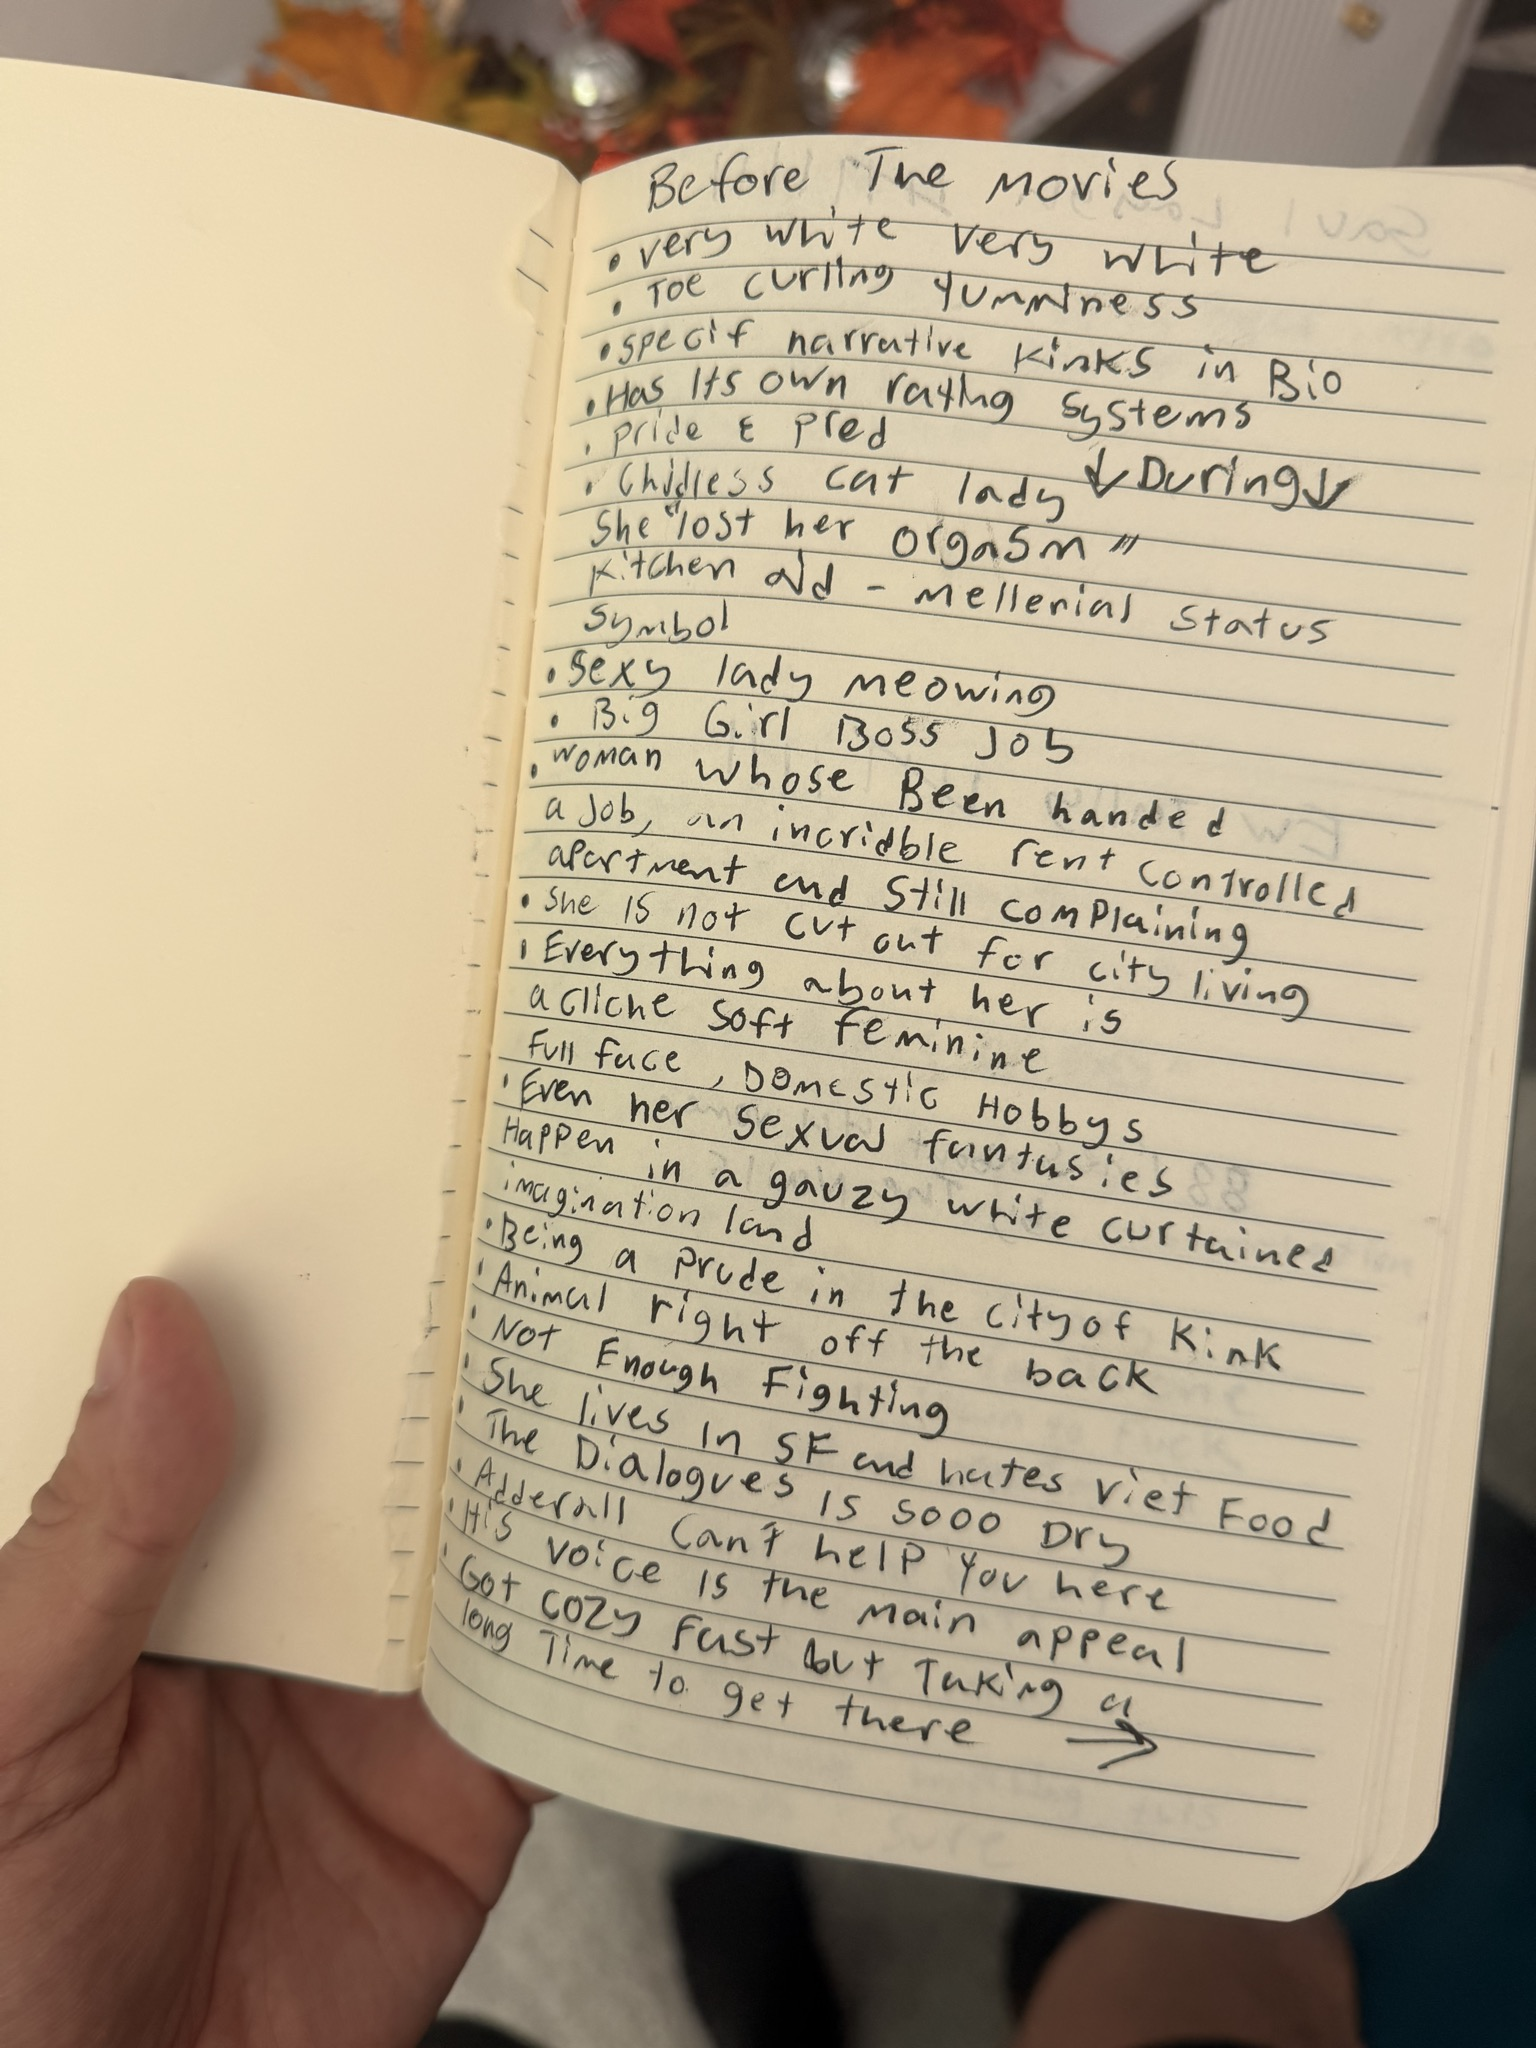 Before The Movies
• very white very white
• Toe curling yumminess
• specif narrative kinks in Bio
• Has Its own rating systems
• pride & pred
• Childless cat lady ↓During↓
She "lost her orgasm"
Kitchen aid - mellerial status
symbol
• sexy lady meowing
• Big Girl Boss Job
• woman whose Been handed
a job, an incridble rent controlled
apartment and still complaining
• she is not cut out for city living
• Everything about her is
a cliche soft feminine
full face, Domestic Hobbys
• Even her sexual funtusies
Happen in a gauzy white curtained
imagination land
• Being a prude in the city of kink
• Animal right off the back
• Not Enough Fighting
• She lives in SF and hates viet Food
• The Dialogues is sooo Dry
• Adderall can't help you here
• His voice is the main appeal
• Got cozy fast but Taking a
long Time to get there →